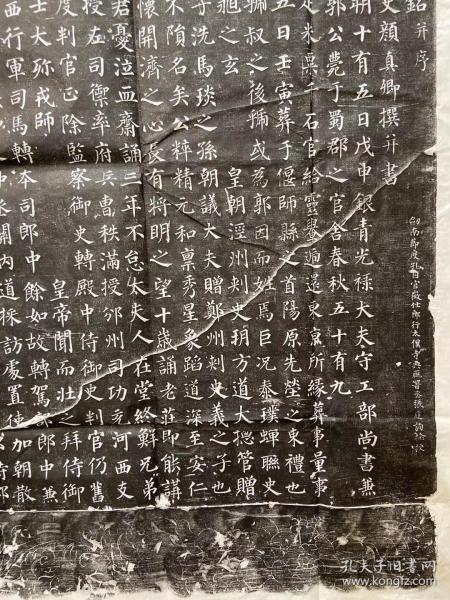 銘并序
史顏真卿撰并書
朔十有五日戊申銀青光祿大夫守工部尚書兼
郭公薨于蜀郡之官舍春秋五十有九
米粟千石官給靈轝遞還東京所緣葬事量事
五日壬寅葬于偃師縣之首陽原先塋之東禮也
虢叔之後虢或為郭因而姓焉巨況泰璞蟬聯史
之玄 皇朝涇州刺史朔方道大揔管贈
子洗馬琰之孫朝議大夫贈鄭州刺史義之子也
不隕名矣公粹精元和稟秀星象蹈道深至安仁
懷開濟之心長有將明之望十歲誦老莊即能講
君憂泣血齋誦三年不怠太夫人在堂終鮮兄弟
授左司禦率府兵曹秩滿授邠州司功充河西支
度判官正除監察御史轉殿中侍御史判官仍舊
士大弥戎師 皇帝聞而壯之拜侍御
西行軍司馬轉本司郎中餘如故轉駕部郎中兼
中丞關內道採訪處置使加朝散
劍南節度孔目官徵仕郎行太僕寺典廄署丞張 詢檢校
孔夫子旧书网
www.kongfz.com